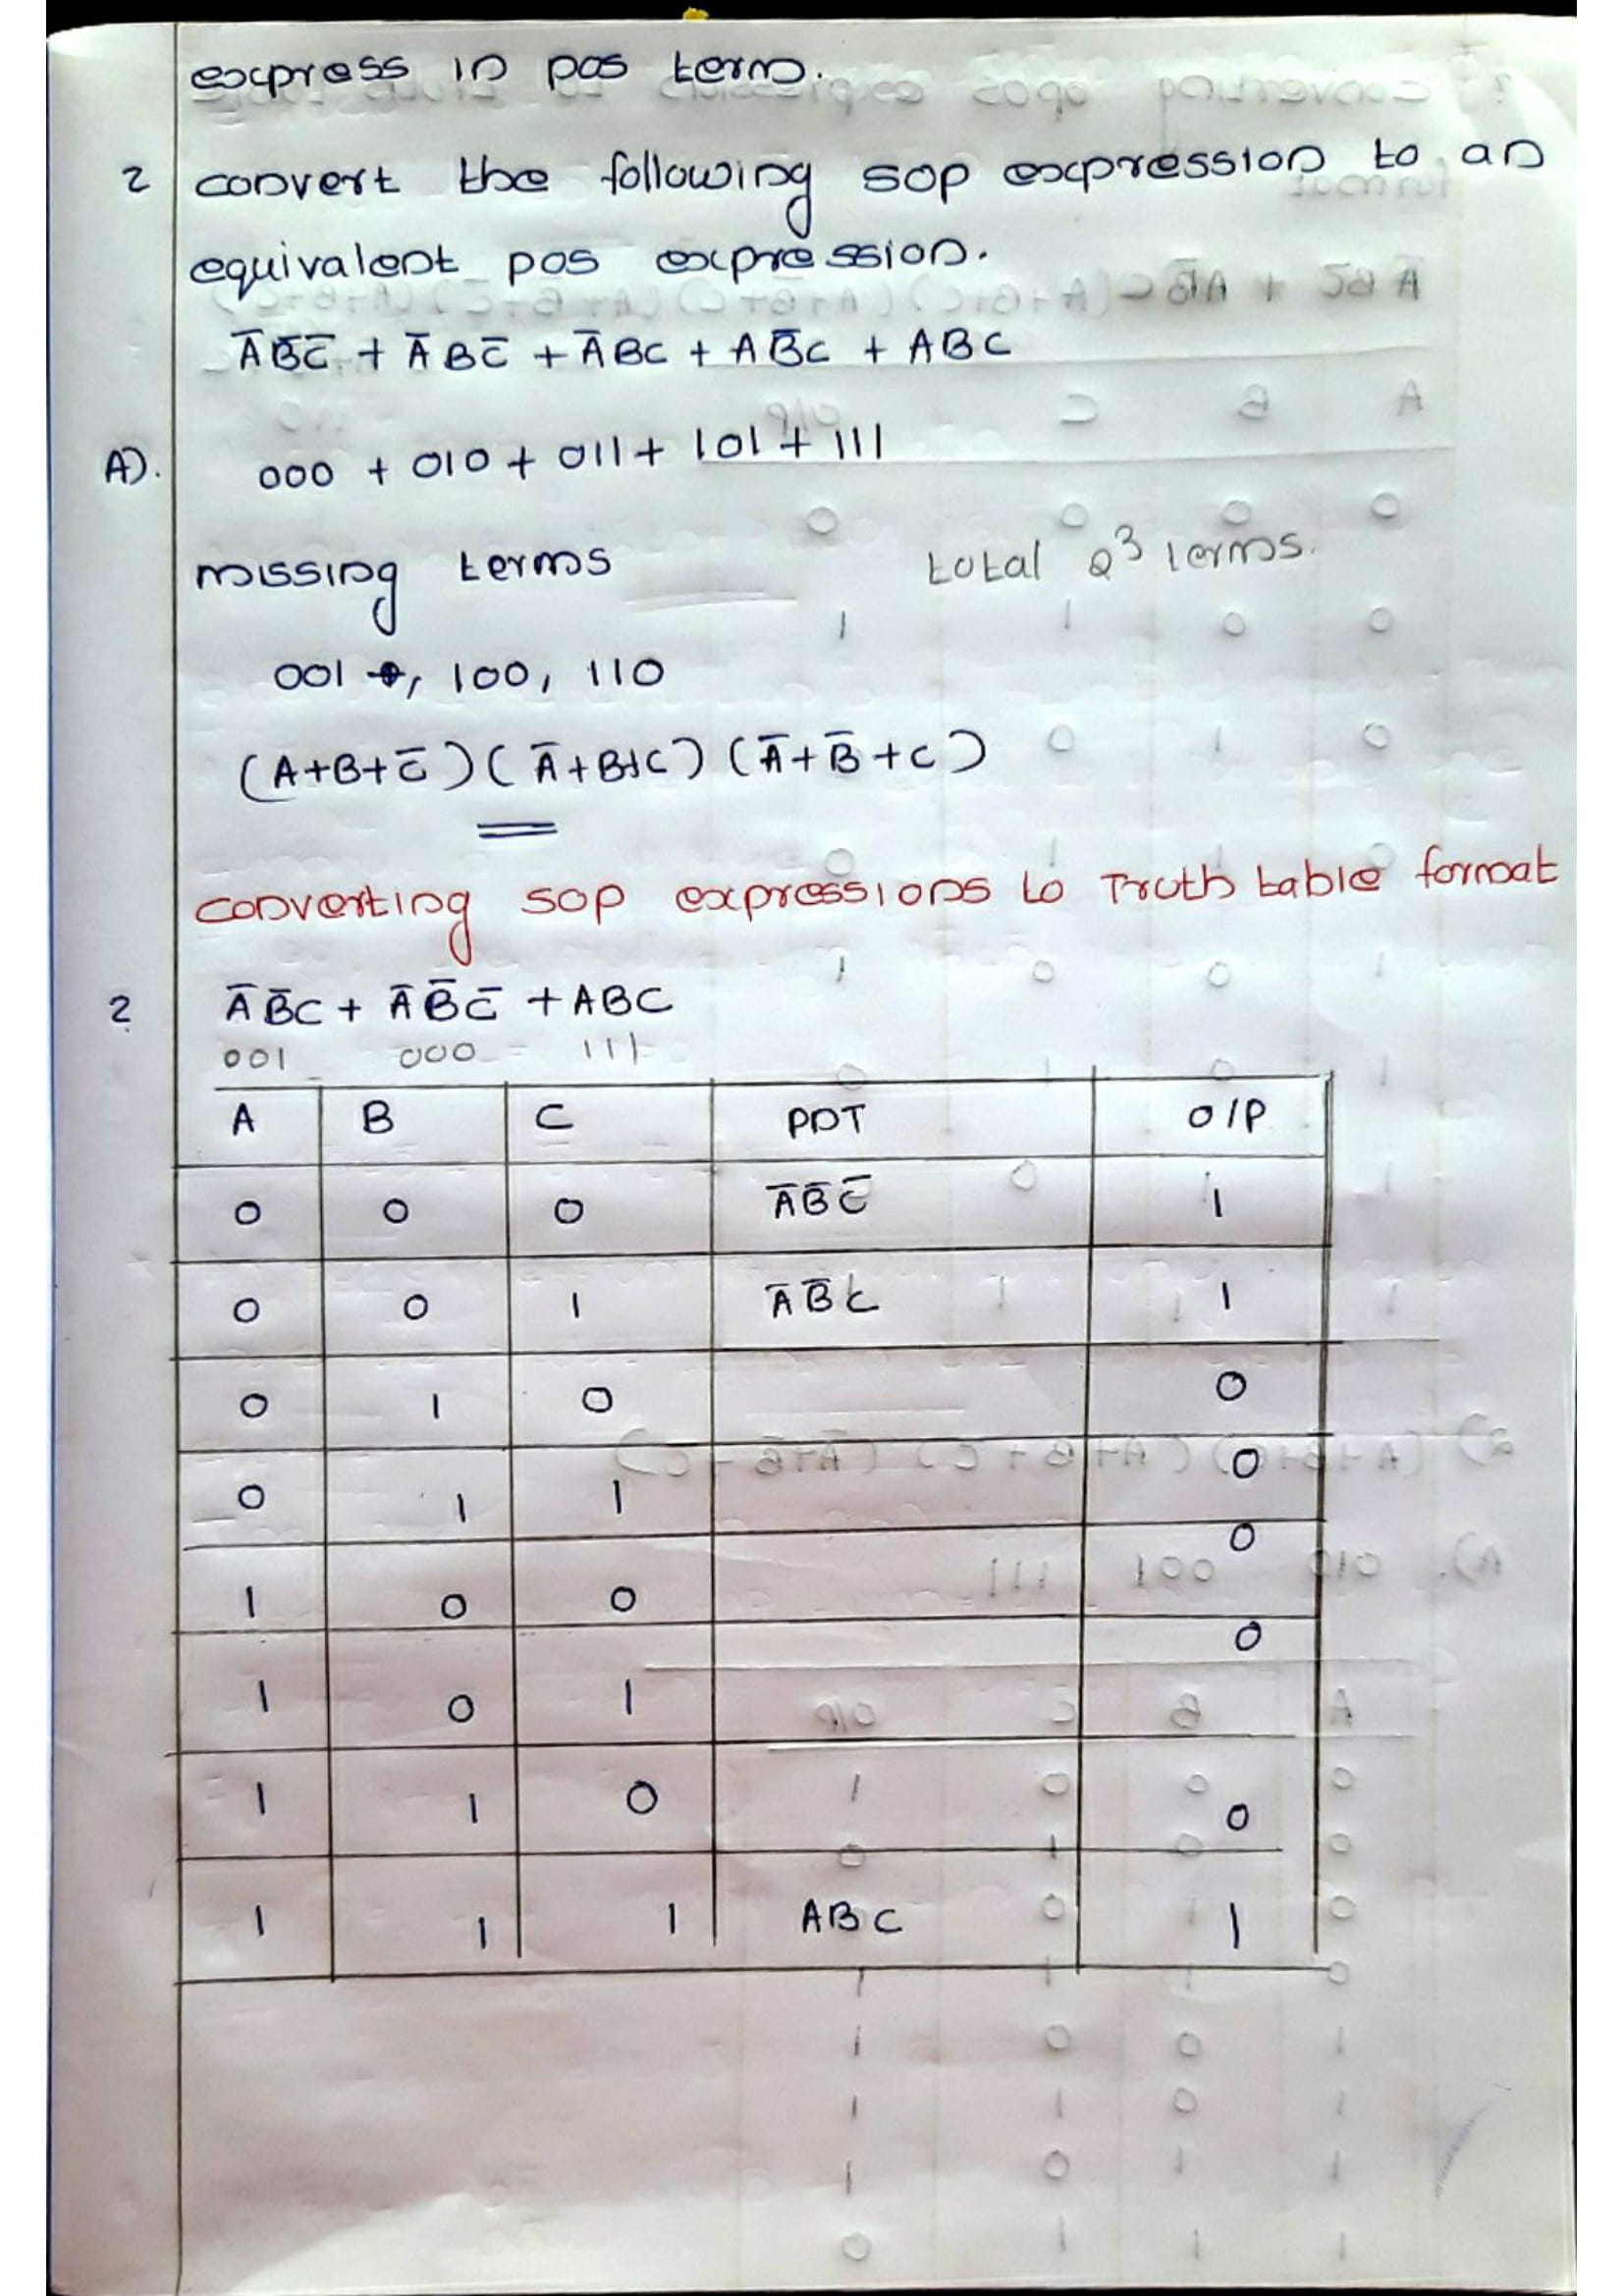 express in pos term.
? convert the following sop expression to an
equivalent pos expression.
A̅B̅C̅ + A̅BC̅ + A̅BC + AB̅C + ABC
A). 000 + 010 + 011 + 101 + 111
missing terms total 2³ terms.
001, 100, 110
(A+B+C̅)(A̅+B+C)(A̅+B̅+C)
converting sop expressions to Truth table format
? A̅B̅C + A̅B̅C̅ + ABC
001 000 111
A B C PDT O/P
0 0 0 A̅B̅C̅ 1
0 0 1 A̅B̅C 1
0 1 0 0
0 1 1 0
1 0 0 0
1 0 1 0
1 1 0 0
1 1 1 ABC 1